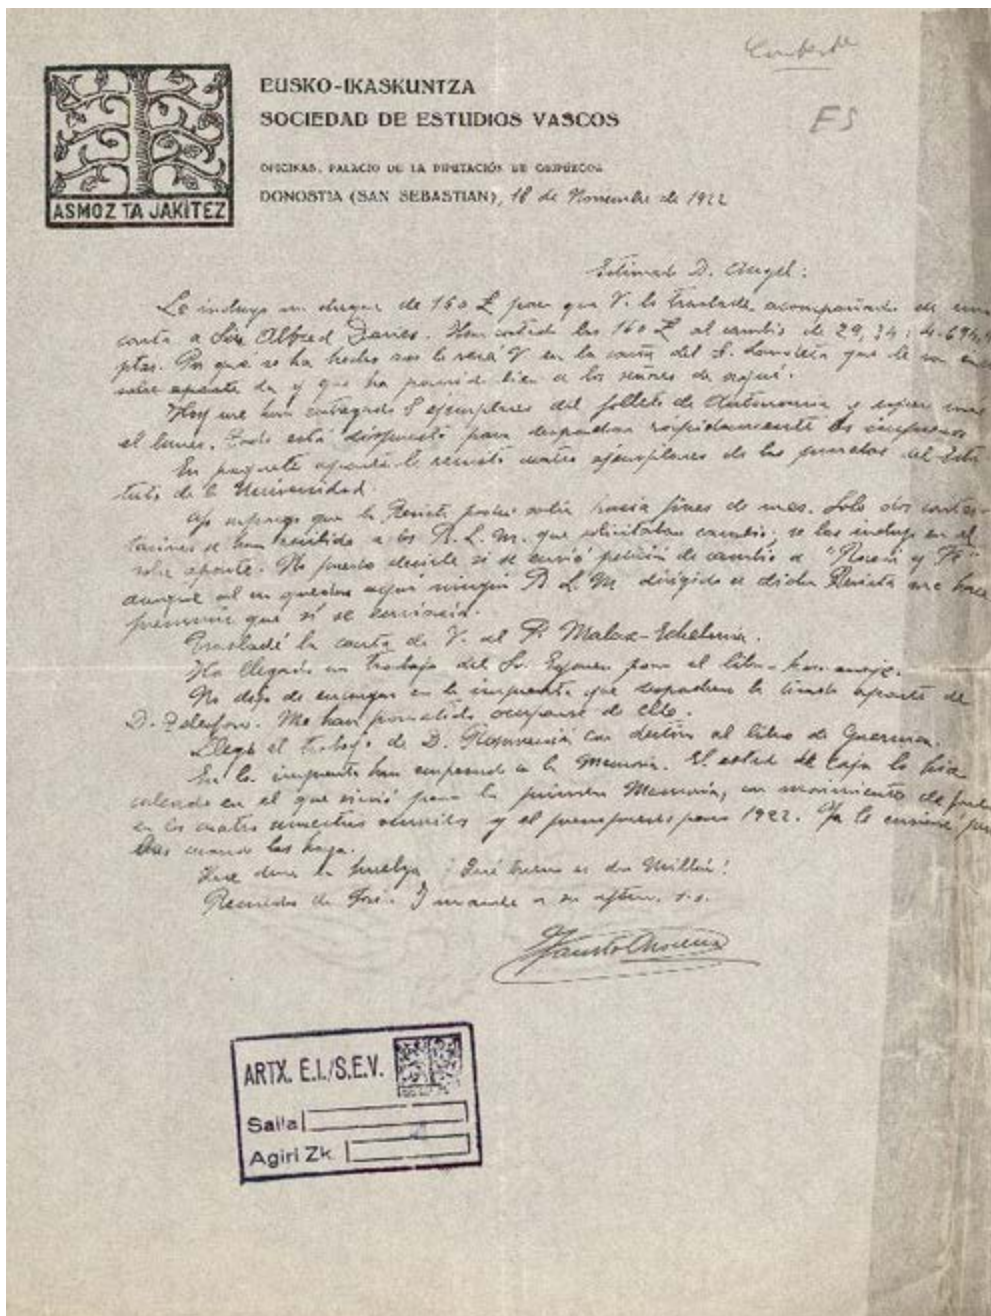 EUSKO-IKASKUNTZA
SOCIEDAD DE ESTUDIOS VASCOS
OFICINAS, PALACIO DE LA DIPUTACIÓN DE GUIPÚZCOA
DONOSTIA (SAN SEBASTIAN), 18 de Noviembre de 1922
ASMOZ TA JAKITEZ
ES
Estimado D. Angel:
Le incluyo un cheque de 160 £ para que V. lo traslade, acompañado de una
carta a Sir Alfred Davies. Han costado las 160 £ al cambio de 29,34:
ptas. Por qué se ha hecho así lo verá V. en la carta del S. que le
sobre aparte y que ha parecido bien a los señores de aquí.
Hoy me han entregado 8 ejemplares del folleto de Autonomía y
el lunes. Todo está dispuesto para despachar rapidamente los impresos
En paquete aparte le remito cuatro ejemplares de las pruebas del Esta
tuto de la Universidad.
que la Revista podrá salir hacia fines de mes. Solo dos contes-
taciones se han recibido a los B. L. M. que solicitaban cambio; se las incluyo en el
sobre aparte. No puedo decirle si se envió petición de cambio a "Razón y Fe"
aunque el no quedar aquí ningún B. L. M. dirigido a dicha Revista me hace
presumir que sí se enviaría.
Trasladé la carta de V. al P. Malax-Echeverria.
Ha llegado un trabajo del Sr. para el libro-homenaje.
No dejo de encargar en la imprenta que despachen la tirada aparte de
D. Telesforo. Me han prometido ocuparse de ello.
Llegó el trabajo de D. con destino al libro de Guernica.
En la imprenta han empezado a la Memoria. El estado de Caja lo
calcado en el que sirvió para la primera Memoria, con movimiento de
en los cuatro semestres y el presupuesto para 1922. Ya le enviaré
bas cuando las haya.
dura la huelga ¡ Qué bueno es don Millán!
Recuerdos de José. Y mande a su afftmo. s.s.
Fausto Arocena
ARTX. E.I./S.E.V.
Saila
Agiri Zk.